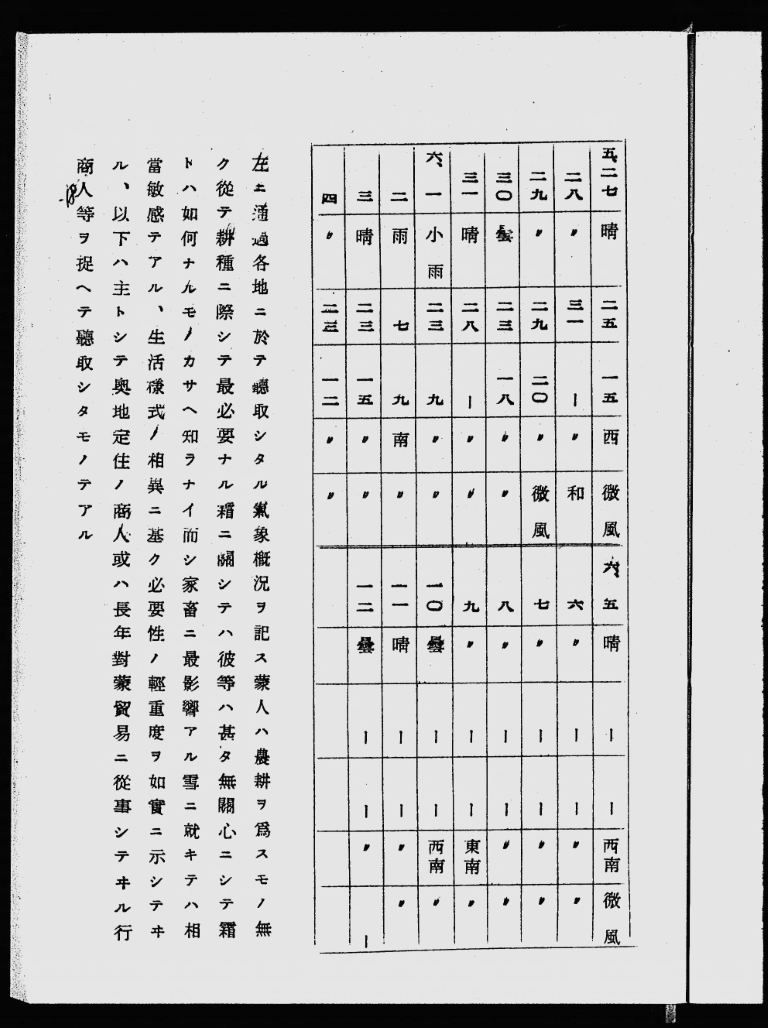 五、二七 晴 二五 一五 西 微風 六、五 晴 ｜ ｜ 西南 微風
二八 〃 三一 ｜ 〃 和 六 〃 ｜ ｜ 〃 〃
二九 〃 二九 二〇 〃 微風 七 〃 ｜ ｜ 〃 〃
三〇 曇 二三 一八 〃 〃 八 〃 ｜ ｜ 〃 〃
三一 晴 二八 ｜ 〃 〃 九 〃 ｜ ｜ 東南 〃
六、一 小雨 二三 九 〃 〃 一〇 曇 ｜ ｜ 西南 〃
二 雨 七 九 南 〃 一一 晴 ｜ ｜ 〃 〃
三 晴 二三 一五 〃 〃 一二 曇 ｜ ｜ 〃 ｜
四 〃 二三 一二 〃 〃
左ニ通過各地ニ於テ聽取シタル氣象槪況ヲ記ス蒙人ハ農耕ヲ爲スモノ無
ク從テ耕種ニ際シテ最必要ナル霜ニ關シテハ彼等ハ甚タ無關心ニシテ霜
トハ如何ナルモノカサヘ知ラナイ而シ家畜ニ最影響アル雪ニ就キテハ相
當敏感テアル、生活樣式ノ相異ニ基ク必要性ノ輕重度ヲ如實ニ示シテヰ
ル、以下ハ主トシテ奧地定住ノ商人或ハ長年對蒙貿易ニ從事シテヰル行
商人等ヲ捉ヘテ聽取シタモノテアル